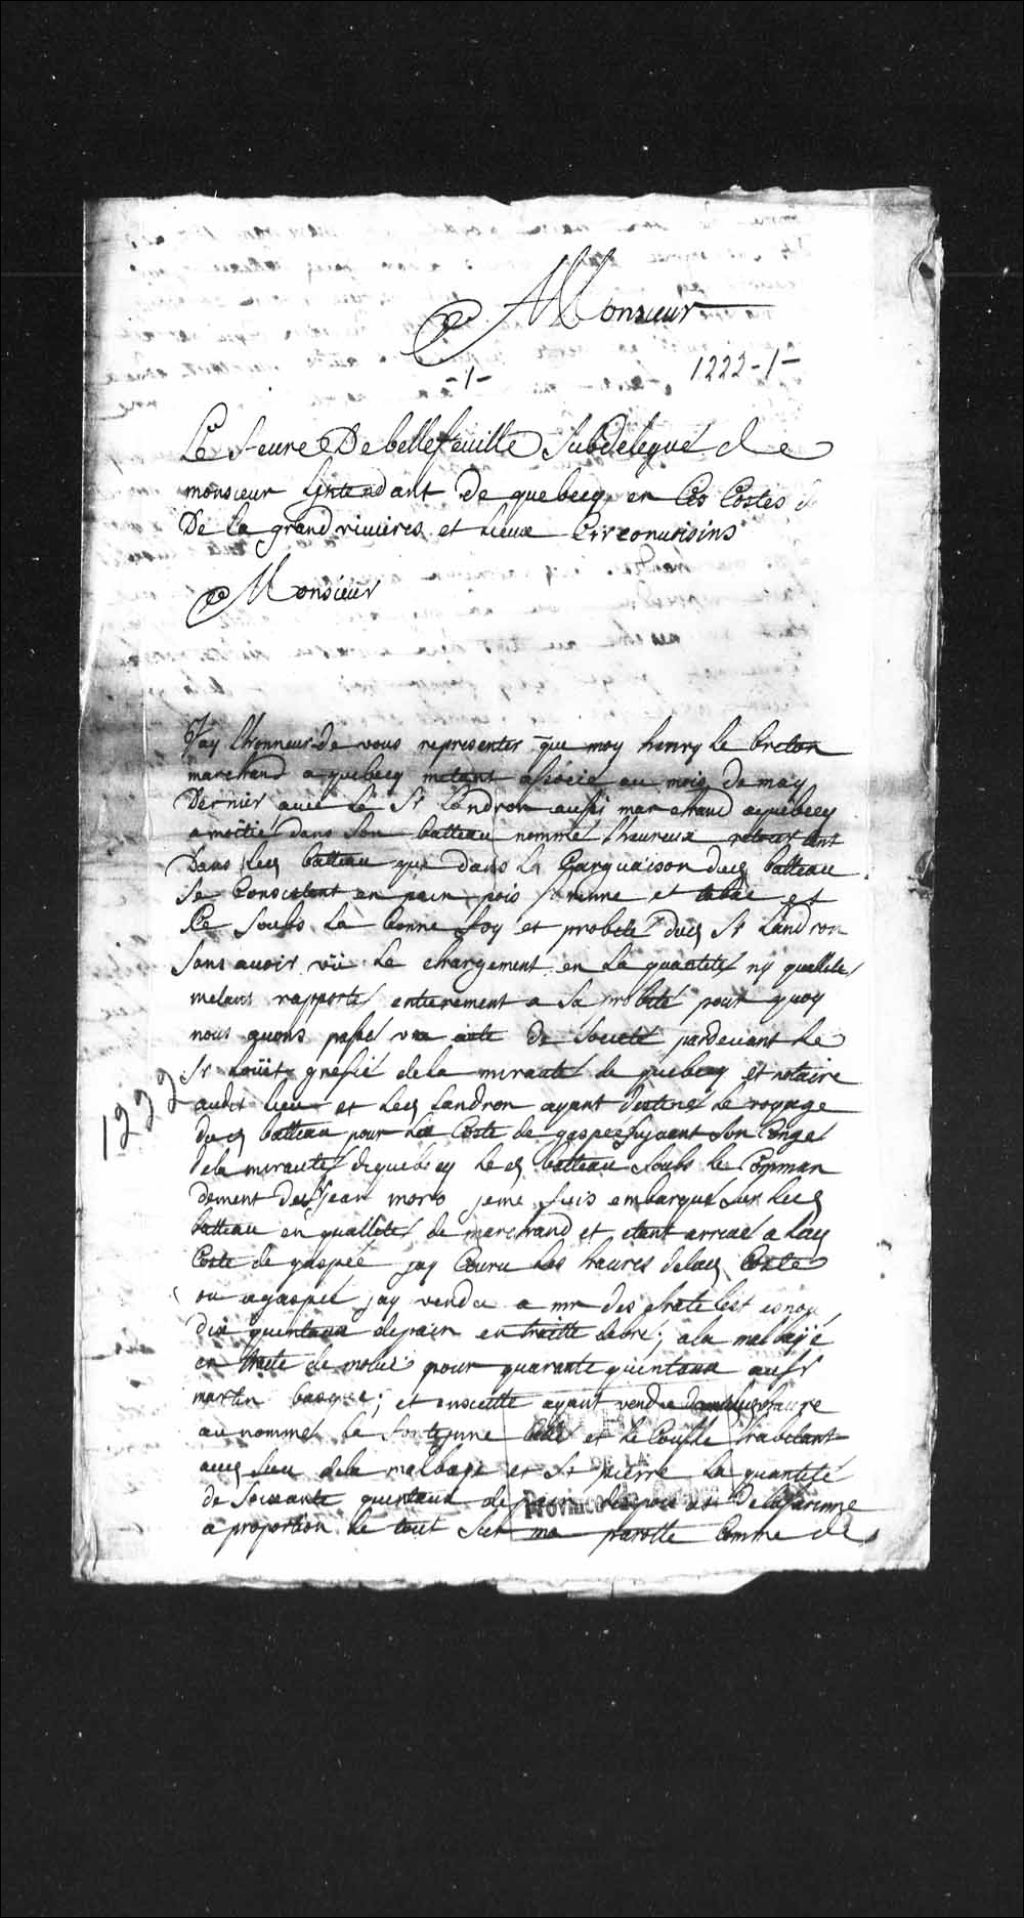 A Monsieur
1222-1-
-1-
Le Sieure De bellefeuille Subdelegué de
monsieur Lintendant de quebecq en Ces Costes
De la grand rivieres et lieux Circonvoisins
Monsieur
Jay lhonneur de vous representer que moy henry le breton
marchand a quebecq metant asocié au mois de may
Dernier avec le Sr Landron aussi marchand aquebecq
amoitié dans son batteau nommé lheureux retour tant
Dans ledt batteau que dans la Carguaison dudt batteau
se Consistant en pain pois farinne et tabac et
Ce soubs la bonne foy et probité dudt Sr Landron
sans avoir vû le chargement en la quantité ny quallité
metant rapporté entierement a sa probité pour quoy
nous avons passé un acte de Societé pardevant le
Sr Loüet grefié de la mirauté de quebecq et notaire
audit lieu et ledt Landron ayant destiné le voyage
dudt batteau pour la Coste de gaspez suyvant son Congé
dela mirauté de quebecq le dt batteau soubs le Comman
dement de Sr jean more jeme suis embarqué sur ledt
batteau en quallité de marchand et etant arrivé a ladt
Coste de gaspée jay Couru les havres deladt Coste
ou agaspée jay vendu a mr des
dix quintaux depain en traitte ; ala malbaÿe
en traite de molue pour quarante quintaux au Sr
martin basque; et ensuitte ayant vendu
au nommé la fontenne et le Comte habitant
audt lieu dela malbaye et St pierre la quantité
de soixante quintaux de pain des pois et De la farinne
a proportion le tout sur ma parolle Comme de
1222
DE LA
Province